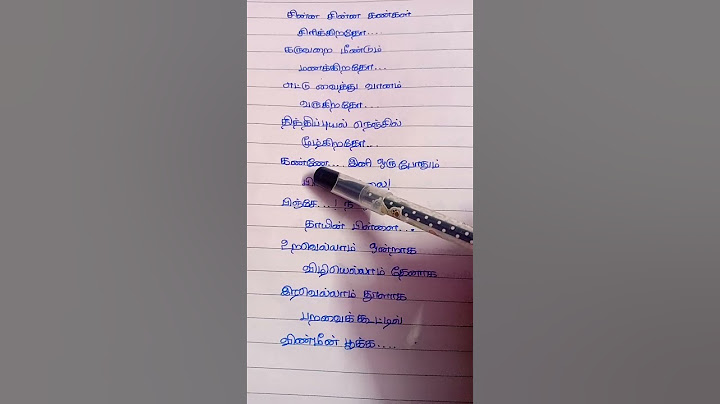 சின்ன சின்ன கண்கள்
சிரிக்கிறதோ...
கருவறை மீண்டும்
மணக்கிறதோ...
எட்டு வைத்து வானம்
வருகிறதோ...
தித்திப்புயல் நெஞ்சில்
மூழ்கிறதோ...
கண்ணே.... இனி ஒருபோதும்
பிஞ்சே...!
தாயின் பிள்ளை...
உறவெல்லாம் ஒன்றாக
விழியெல்லாம் தேனாக
இரவெல்லாம் தூளாக
பறவைக் கூட்டில்
விண்மீன் பூக்க....